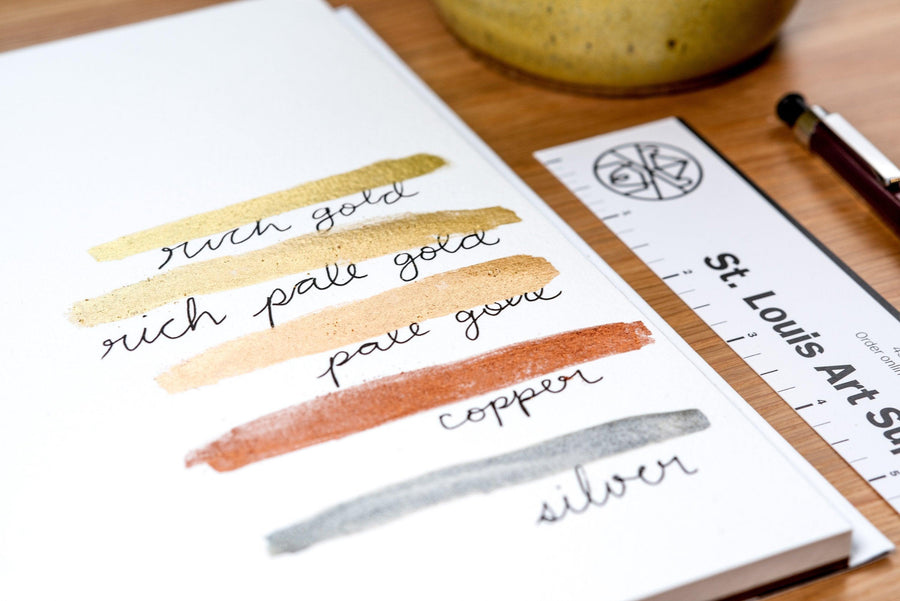 rich gold
rich pale gold
pale gold
copper
silver
St. Louis Art
Order
1
2
3
4
5